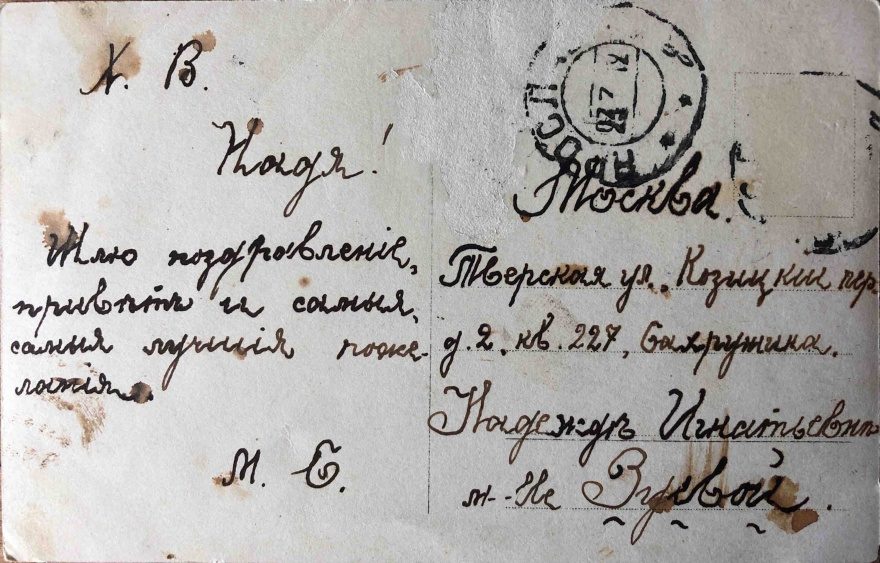 Х. В.
Надя!
Шлю поздравленіе,
привѣтъ и самыя,
самыя лучшія поже-
ланія.
М. Б.
Москва.
Тверская ул., Козицкій пер.
д. 2, кв. 227, Бахрушина.
Надеждѣ Игнатьевнѣ
м-lle Зуевой.